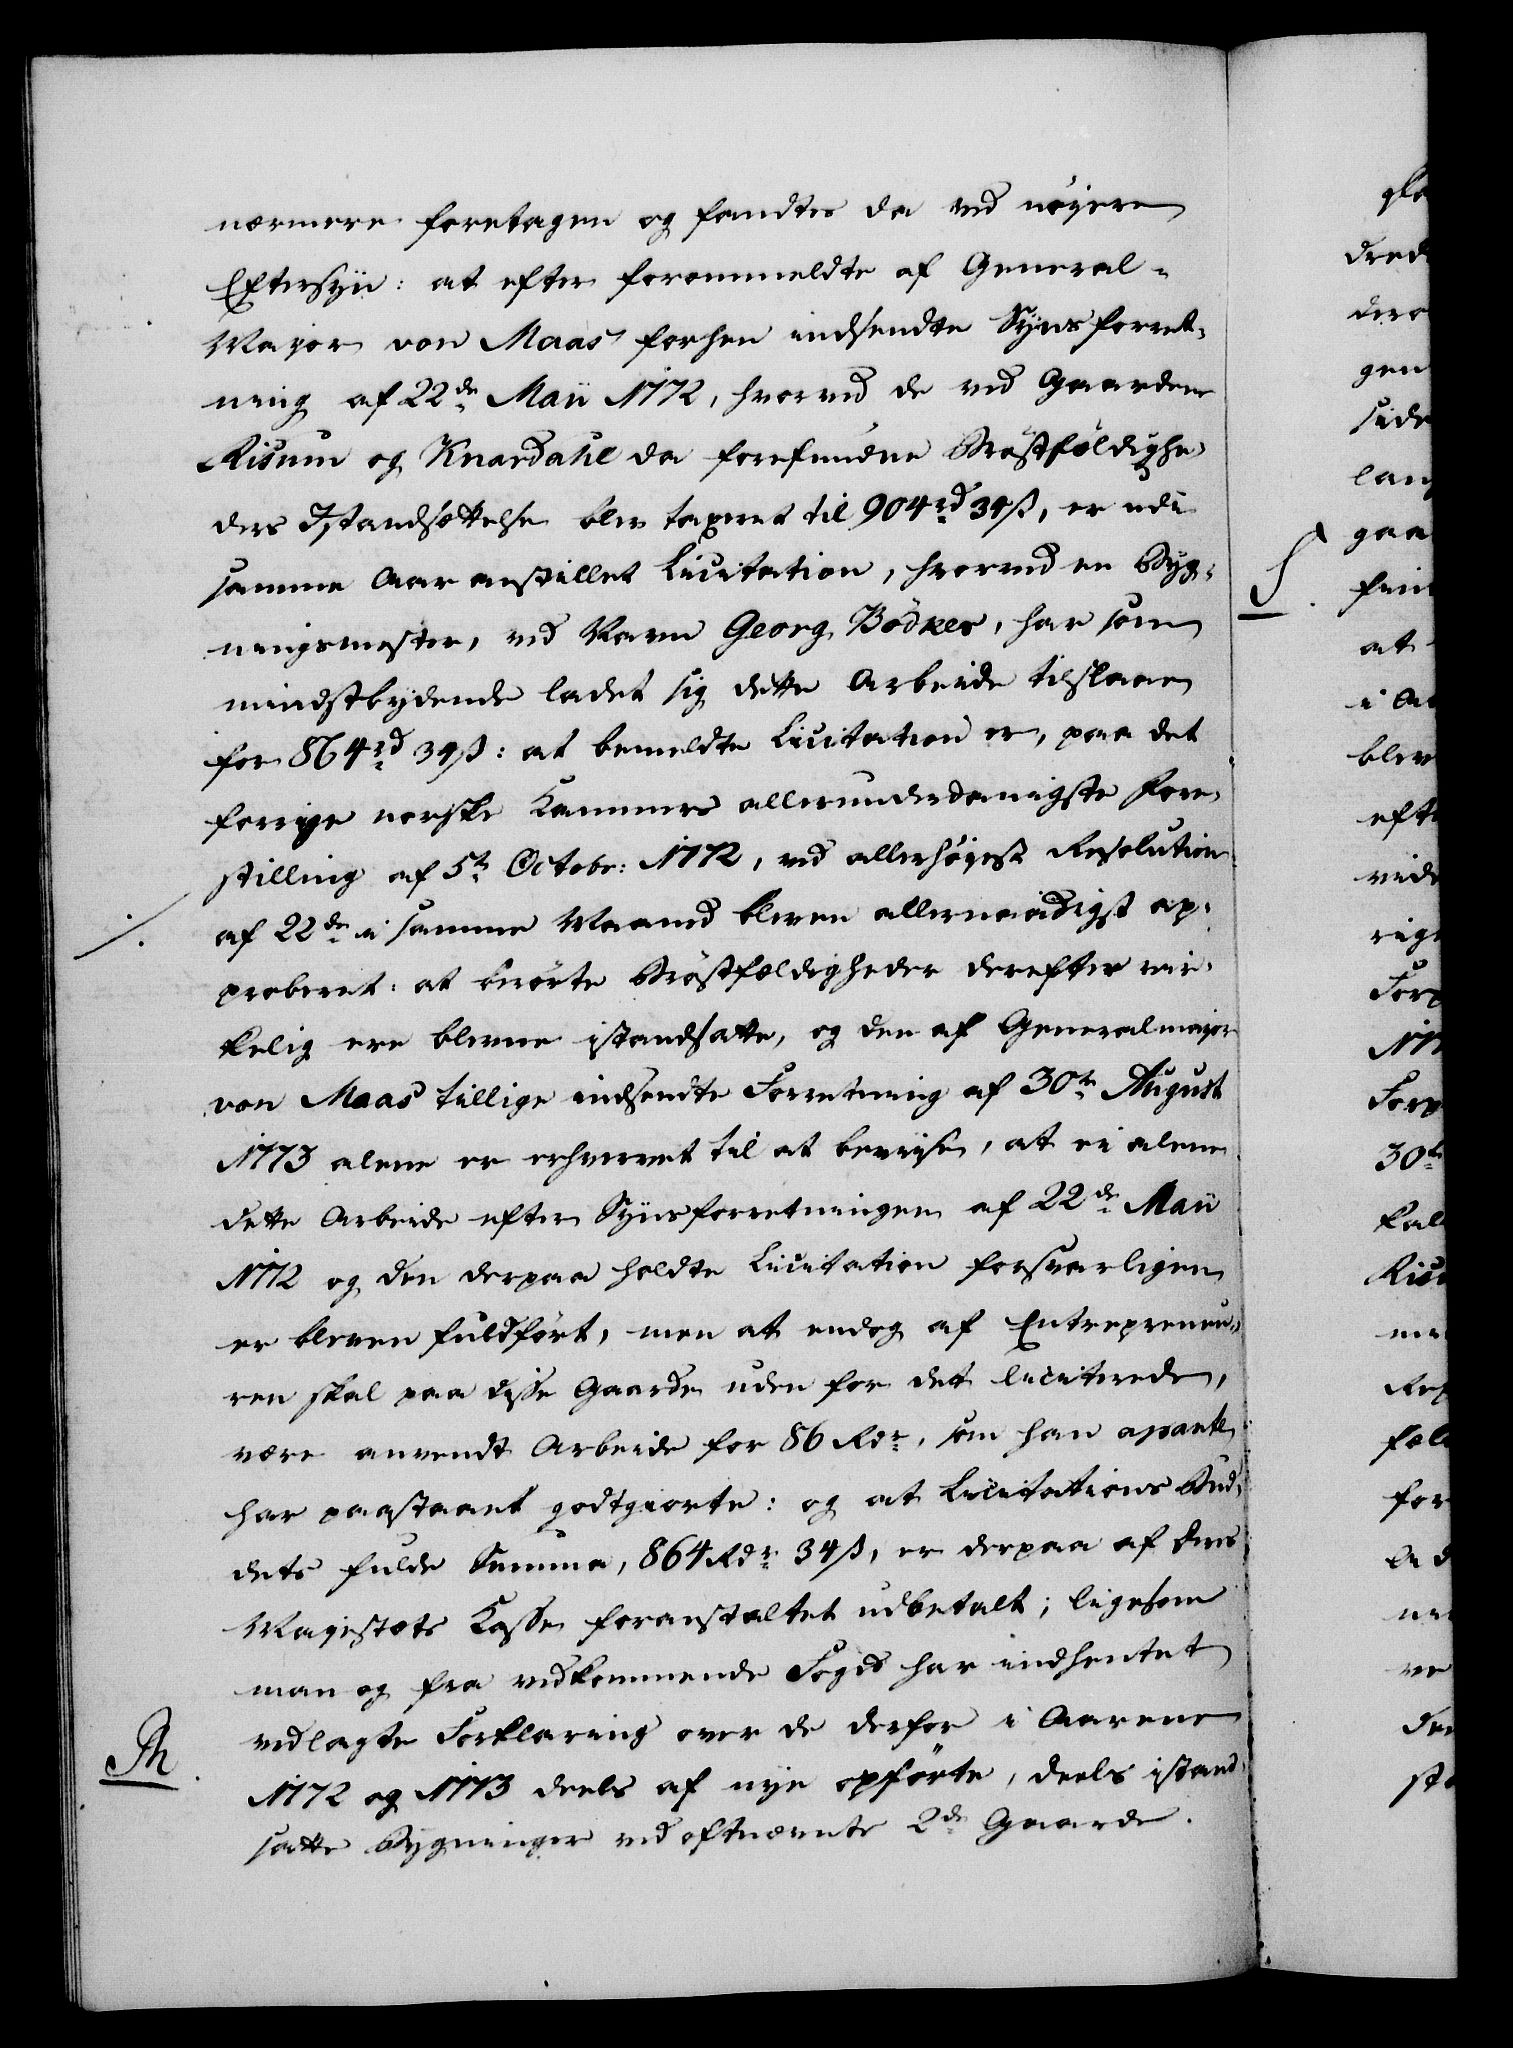 nærmere foretagen og fandtes da ved nöyere
Eftersyn: at efter forommeldte af General-
Major von Maas forhen indsendte Syns forret-
ning af 22de Maii 1772, hvorved de ved Gaardene
Risum og Knardahl da forefundne Bröstfældighe-
ders Istandsættelse blev taxeret til 904rd 34ß, er udi
samme Aar anstillet Licitation, hvorved en Byg-
ningsmester, ved Navn Georg Bödker, har som
mindstbydende ladet sig dette Arbeide tilslaae
for 864rd 34ß: at bemeldte Licitation er, paa det
forrige norske Kammers allerunderdanigste Fore-
stilling af 5te Octobr: 1772, ved allerhöyeste Resolution
af 22de i samme Maaned bleven allernaadigst ap-
proberet: at berörte Bröstfældigheder derefter vir-
kelig ere blevne istandsatte, og den af Generalmajor
von Maas tillige indsendte Forretning af 30te August
1773 alene er erhvervet til at beviise, at ei alene
dette Arbeide efter Synsforretningen af 22de Maii
1772 og den derpaa holdte Licitation forsvarligen
er bleven fuldfört, men at endog af Entrepreneu-
ren skal paa disse Gaarde uden for det liciterede,
være anvendt Arbeide for 86 Rdr, som han aparte
har paastaaet godtgiorte: og at Licitations Bud-
dets fulde Summa, 864 Rdr 34ß, er derpaa af Deres
Majestæts Kasse foranstaltet udbetalt; ligesom
man og fra vedkommende Foged har indhentet
vedlagte Forklaring over de derfor i Aarene
1772 og 1773 deels af nye opförte, deels istand-
satte Bygninger ved oftnævnte 2de Gaarde.